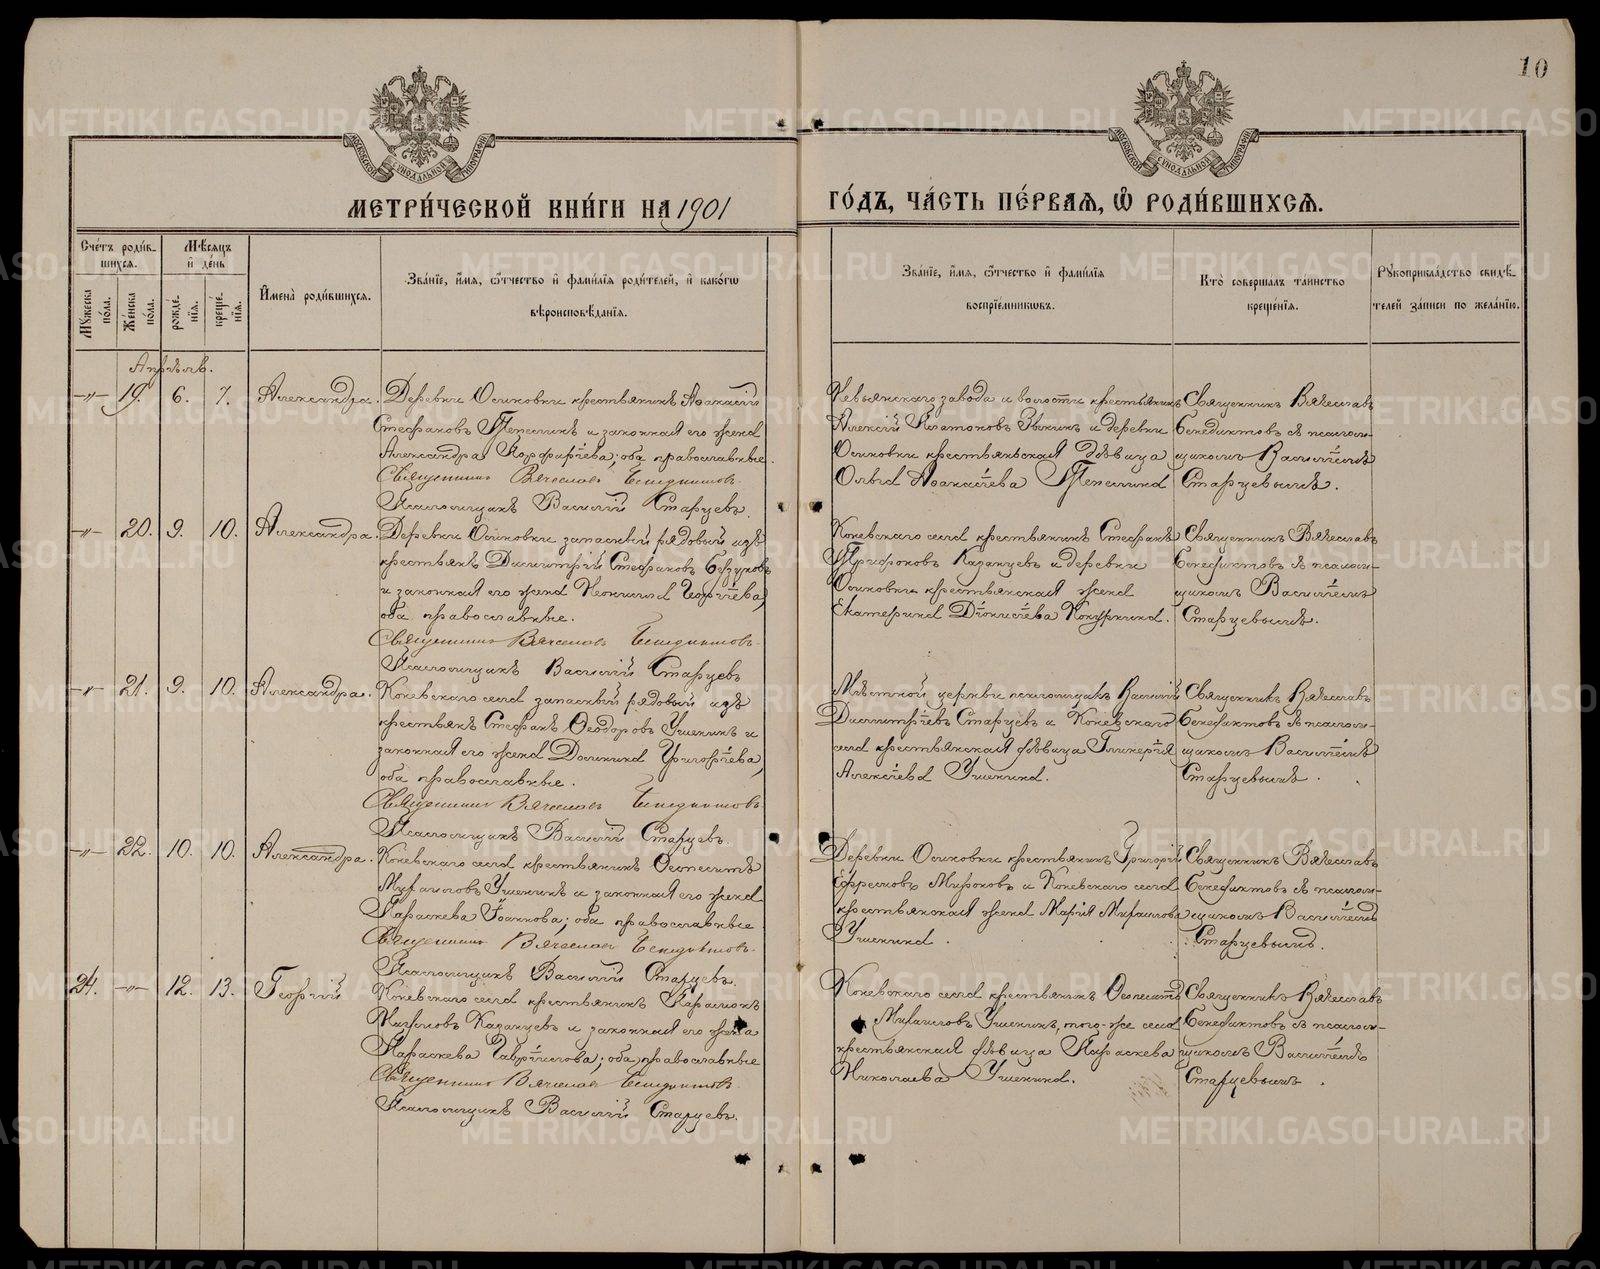 10
МЕТРИ́ЧЕСКОЙ КНИ́ГИ НА 1901 ГО́ДЪ, ЧА́СТЬ ПЕ́РВАЯ, Ѡ РОДИ́ВШИХСЯ.
Сче́тъ роди́в-
шихся.
Мѣ́сяцъ
и де́нь
Му́жеска по́ла.
Же́нска по́ла.
рожде́-
нія.
креще́-
нія.
Имена̀ роди́вшихся.
Зва́ніе, и́мя, ѻ́тчество и фами́лія роди́телей, и како́гѡ
вѣроисповѣ́данія.
Зва́ніе, и́мя, ѻ́тчество и фами́лія
воспріе́мникѡвъ.
Кто̀ соверша́лъ та́инство
креще́нія.
Рꙋкоприкла́дство свидѣ́-
телей за́писи по жела́нію.
Апрѣль.
-„- 19. 6. 7. Александра.
Деревни Осиновки крестьянинъ Аѳанасій
Стефановъ Пепелинъ и законная его жена
Александра Порфирьева; оба православные.
Священникъ Вячеславъ Бенедиктовъ.
Псаломщикъ Василій Старцевъ.
Невьянскаго завода и волости крестьянинъ
Алексій Платоновъ и деревни
Осиновки крестьянская дѣвица
Ольга Аѳанасіева Пепелина
Священникъ Вячеславъ
Бенедиктовъ съ псалом-
щикомъ Василіемъ
Старцевымъ.
-„- 20. 9. 10. Александра.
Деревни Осиновки запасный рядовый изъ
крестьянъ Димитрій Стефановъ
и законная его жена Георгіева,
оба православные.
Священникъ Вячеславъ Бенедиктовъ.
Псаломщикъ Василій Старцевъ
Коневскаго села крестьянинъ Стефанъ
Трифоновъ Казанцевъ и деревни
Осиновки крестьянская жена
Екатерина Діонисіева
Священникъ Вячеславъ
Бенедиктовъ съ псалом-
щикомъ Василіемъ
Старцевымъ.
-„- 21. 9. 10. Александра.
Коневскаго села запасный рядовый изъ
крестьянъ Стефанъ Ѳеодоровъ Ушенинъ и
законная его жена Домнина Григоріева,
оба православные.
Священникъ Вячеславъ Бенедиктовъ.
Псаломщикъ Василій Старцевъ.
Мѣстной церкви псаломщикъ Василій
Димитріевъ Старцевъ и Коневскаго
села крестьянская дѣвица Гликерія
Алексіева Ушенина.
Священникъ Вячеславъ
Бенедиктовъ съ псалом-
щикомъ Василіемъ
Старцевымъ.
-„- 22. 10. 10. Александра.
Коневскаго села крестьянинъ Ѳеопемптъ
Михаиловъ Ушенинъ и законная его жена
Параскева Іоаннова; оба православные.
Священникъ Вячеславъ Бенедиктовъ.
Псаломщикъ Василій Старцевъ.
Деревни Осиновки крестьянинъ Григорій
Ефремовъ Мироновъ и Коневскаго села
крестьянская жена Марія Михаилова
Ушенина.
Священникъ Вячеславъ
Бенедиктовъ съ псалом-
щикомъ Василіемъ
Старцевымъ.
24. -„- 12. 13. Георгій
Коневскаго села крестьянинъ Харлампъ
Казанцевъ и законная его жена
Параскева Гавріилова; оба православные
Священникъ Вячеславъ Бенедиктовъ.
Псаломщикъ Василій Старцевъ.
Коневскаго села крестьянинъ Ѳеопемптъ
Михаиловъ Ушенинъ, того-же села
крестьянская дѣвица Параскева
Николаева Ушенина.
Священникъ Вячеславъ
Бенедиктовъ съ псалом-
щикомъ Василіемъ
Старцевымъ.
METRIKI.GASO-URAL.RU